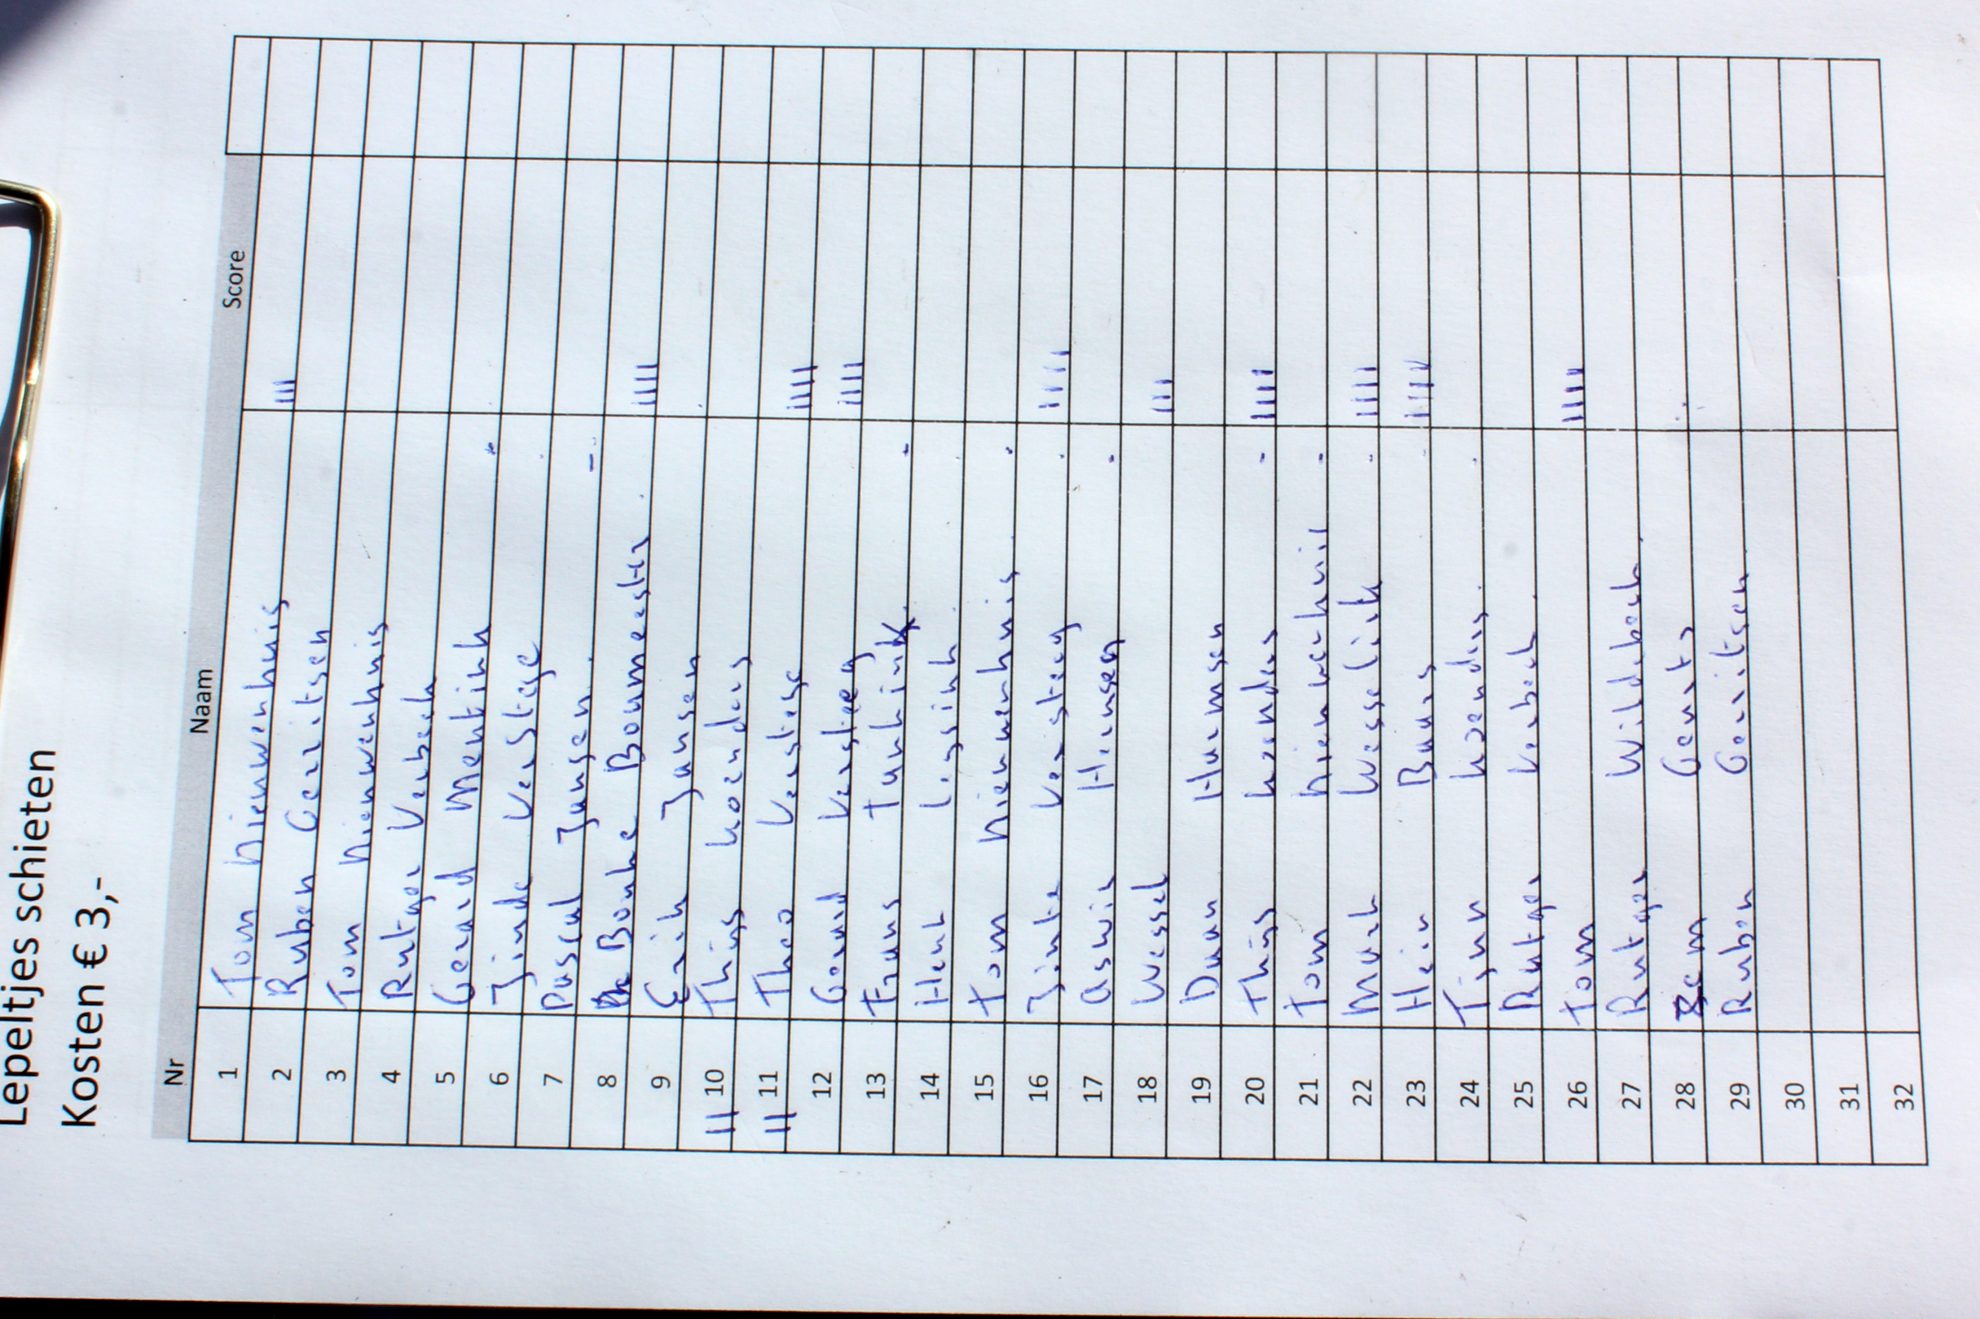 Lepeltjes schieten
Kosten € 3,-
Nr Naam Score
1 Tom Nienwenhuis
2 Ruben Gerritsen III
3 Tom Nienwenhuis
4 Rutger Verbeek
5 Gerard Mentink
6 Jinde Verstege
7 Pascal Jansen
8 Bouke Boumeester
9 Erik Jansen IIII
10 Thijs Koenders
11 Theo Verstege
12 Gerard Versteeg IIII
13 Frans Tankink IIII
14 Henk Lensink
15 Tom Nienwenhuis
16 Jinte Versteeg
17 Aswin Hermsen IIII
18 Wessel
19 Daan Harmsen III
20 Thijs Koenders
21 Tom IIII
22 Mark Wesselink
23 Hein Baars IIII
24 Tijn Koenders IIII
25 Rutger Verbeek
26 Tom
27 Rutger Wildebeek IIII
28 Geurts
29 Ruben Gerritsen
30
31
32